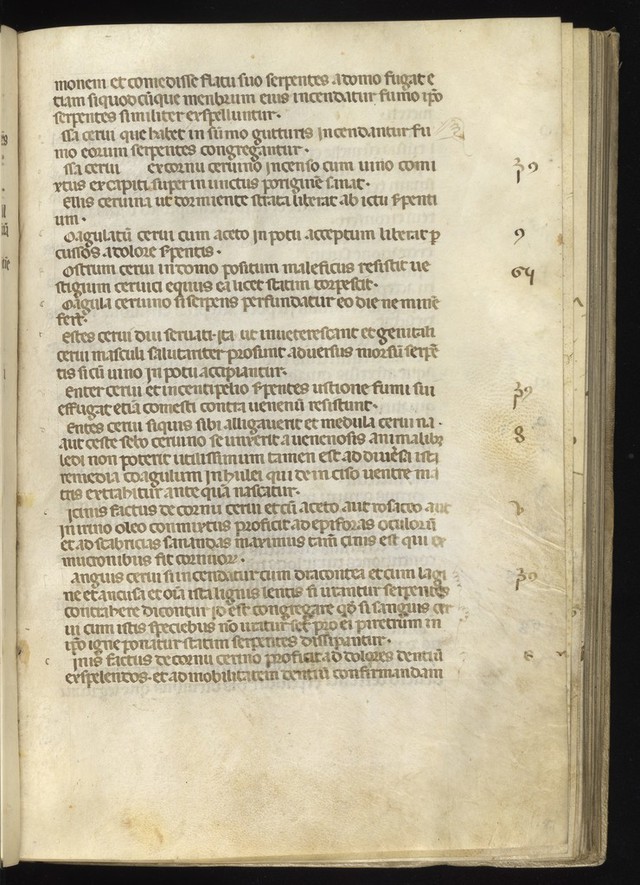 monem et comedisse flatu suo serpentes a domo fugat e
tiam si quod cūque menbrum eius incendatur fumo ip̄o
serpentes similiter expelluntur.
ssa cerui que habet in sūmo gutturis incendantur fu
mo eorum serpentes congregantur.
ssa cerui ex cornu ceruino incenso cum uino comi
xtus ex capiti super inunctus porriginē sanat.
ellis ceruina ut dormiente strata liberat ab ictu s̄penti
um.
oagulatū cerui cum aceto in potu acceptum liberat p
cussos a dolore s̄pentis.
ostrum cerui in domo positum maleficus resistit ue
stigium ceruici equus ea licet statim torpescit.
oagula ceruino si serpens perfundatur eo die ne minē
fert.
estes cerui diu seruati ita ut inueterescant et genitali
cerui masculi salutariter prosunt aduersus morsū serpē
tis si cū uino in potu accipiantur.
enter cerui et incenti pelio s̄pentes ustione fumi sui
effugat etiā comesti contra uenenū resistunt.
entes cerui si quis sibi alligauerit et medula ceruina.
aut ceste sebo ceruino se unxerit a uenenosis animalibz
ledi non poterit utilissimum tamen est ad diuersi isti
remedia coagulum in hulei qui de in ciso uentre ma
tris extrahitur ante quā nascatur.
icinis factus de cornu cerui et cū aceto aut rosaceo aut
in irino oleo conmixtus proficit ad epiforas oculorū
et ad scabricias sanandas maximius tam̄ cinis est qui ex
mucronibus fit cornuor.
anguis cerui si incendatur cum dracontea et cum lagi
ne et ancusa et oīa ista lignis lentis si urantur serpentes
contrahere dicontur id est congregare qd̄ si sanguis cer
ui cum istis speciebus nō uratur set pro ei piretrum in
ip̄o igne ponatur statim serpentes dissipantur.
inis factus de cornu ceruino proficit ad dolores dentiū
expelendos. et ad mobilitatem dentiū confirmandam